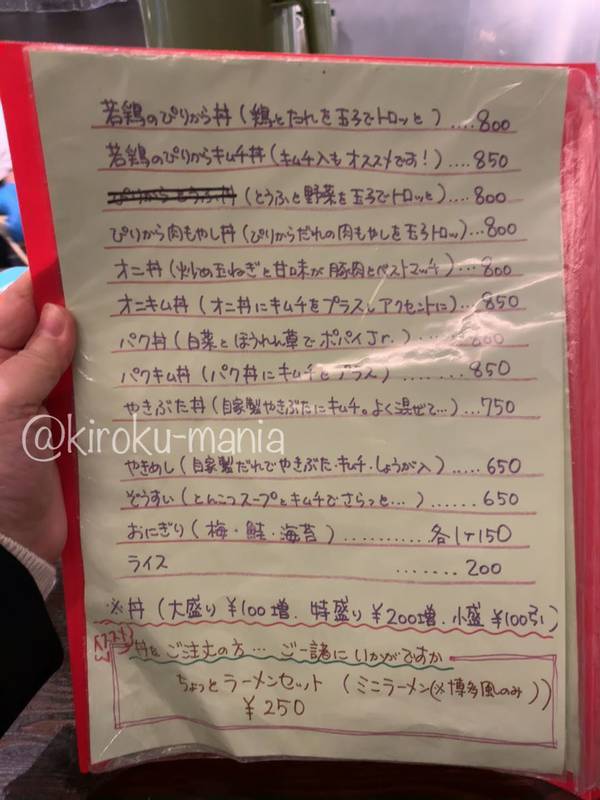 若鶏のぴりから丼(鶏とたれを玉子でトロッと)....800
若鶏のぴりからキムチ丼(キムチ入もオススメです!)....850
(とうふと野菜を玉子でトロッと)....800
ぴりから肉もやし丼(ぴりからだれの肉もやしを玉子トロッ)...800
オニ丼(炒め玉ねぎと甘口味が豚肉とベストマッチ)....800
オニキム丼(オニ丼にキムチをプラスしアクセントに)....850
パク丼(白菜とほうれん草でポパイJr.)....800
パクキム丼(パク丼にキムチをプラス)....850
やきぶた丼(自家製やきぶたにキムチ。よく混ぜて...)...750
@kiroku-mania
やきめし(自家製だれでやきぶた・キムチ・しょうが入).....650
ぞうすい(とんこつスープとキムチでさらっと...)......650
おにぎり(梅・鮭・海苔)..........各1ケ150
ライス.......200
※丼(大盛り¥100増.特盛り¥200増.小盛¥100引)
丼をご注文の方...ご一諸にいかがですか
ちょっとラーメンセット(ミニラーメン(※博多風のみ))
¥250